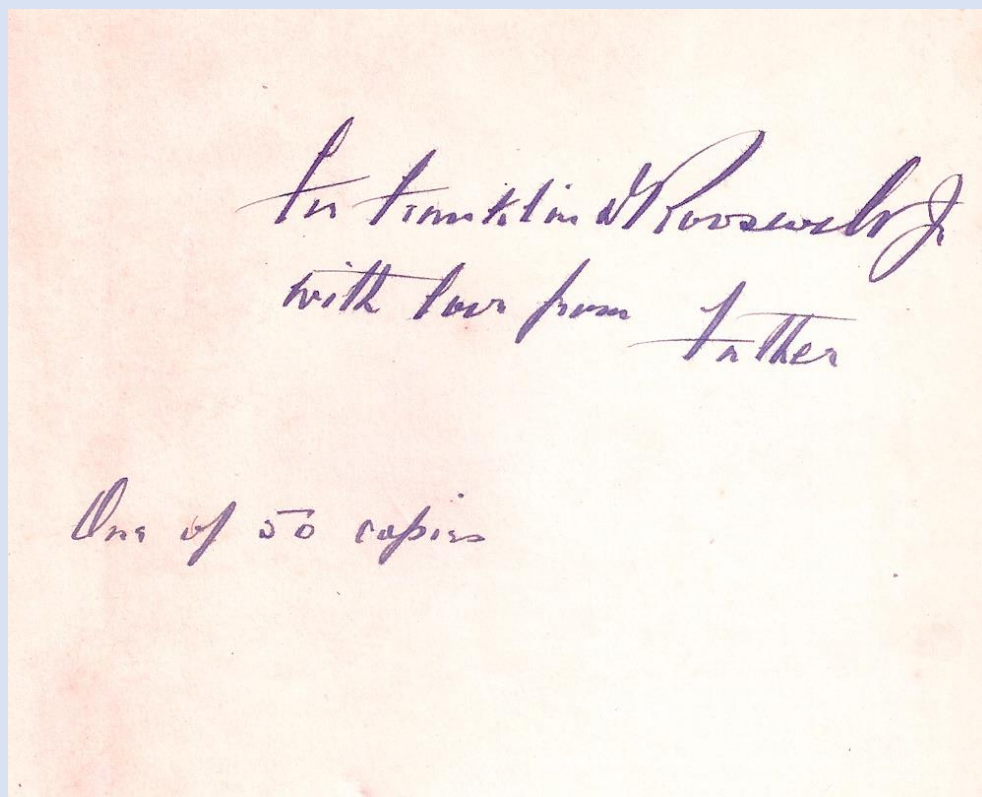 For Franklin D Roosevelt Jr
with love from Father
One of 50 copies